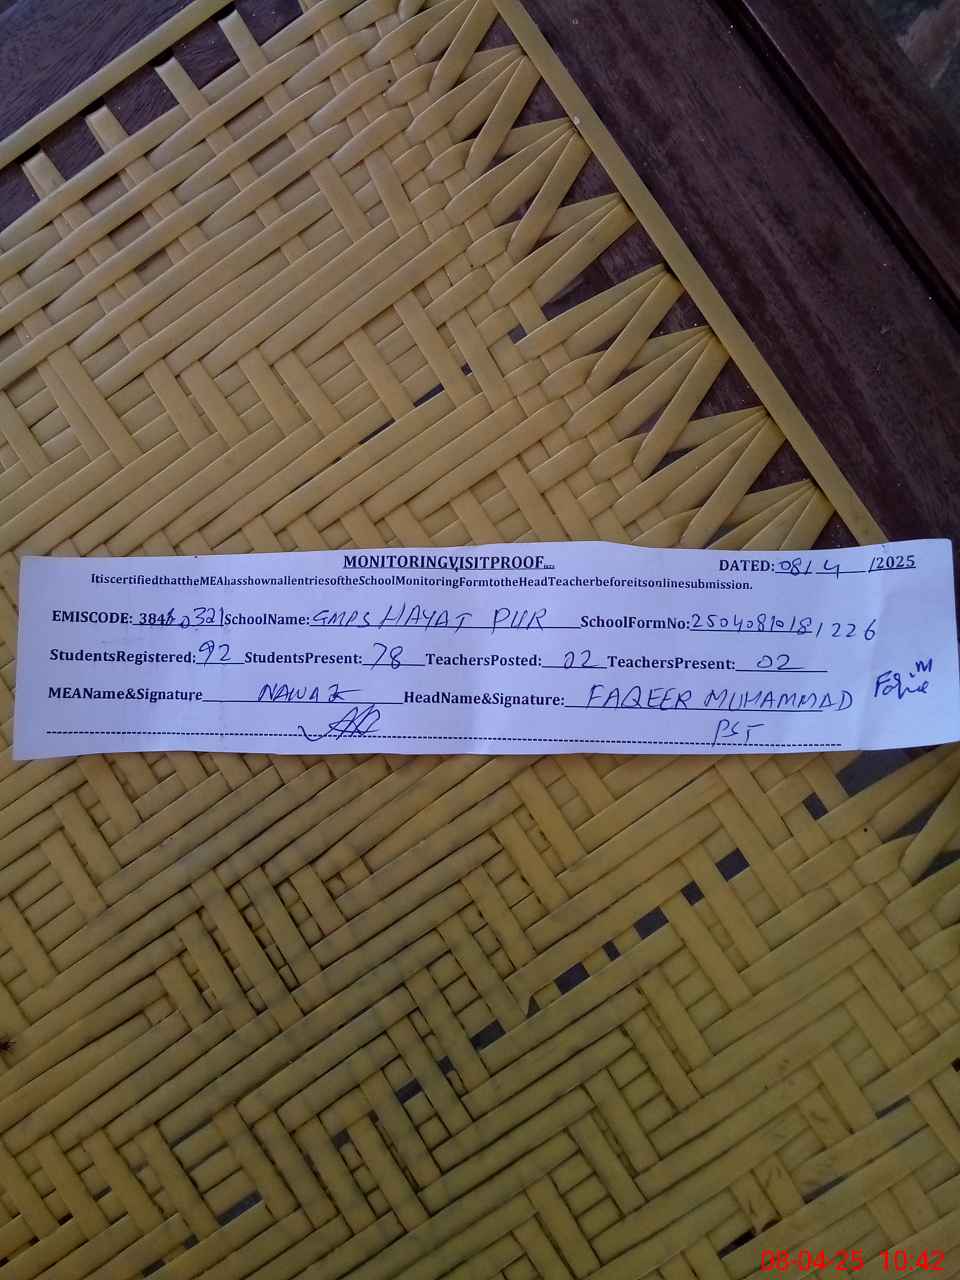 MONITORINGVISITPROOF....
DATED: 08/ 4 /2025
ItiscertifiedthattheMEAhasshownallentriesoftheSchoolMonitoringFormtotheHeadTeacherbeforeitsonlinesubmission.
EMISCODE: SchoolName: GMPS HAYAT PUR SchoolFormNo:
StudentsRegistered: 92 StudentsPresent: 78 TeachersPosted: 02 TeachersPresent: 02
MEAName&Signature NAWAZ HeadName&Signature: FAQEER MUHAMMAD
PST
08-04-25 10:42